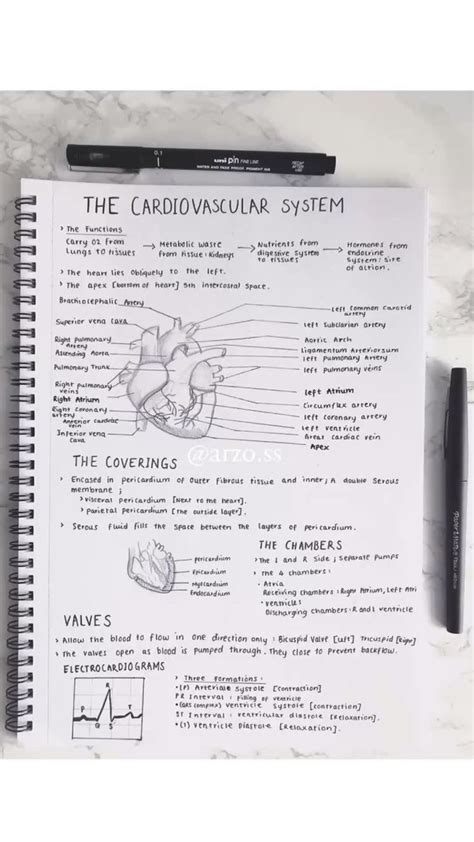 0.1
uni pin FINE LINE
WATER AND FADE PROOF PIGMENT INK
THE CARDIOVASCULAR SYSTEM
> The Functions
Carry O2 from Lungs to tissues → Metabolic waste from tissue: Kidneys → Nutrients from digestive system to tissues → Hormones from endocrine System: Site of action.
> The heart lies Obliquely to the left.
> The apex [bottom of heart] 5th intercostal space.
Brachiocephalic Artery
Superior vena Cava
Right pulmonary artery
Ascending Aorta
Pulmonary Trunk
Right pulmonary veins
Right Atrium
Right coronary artery
Anterior cardiac vein
Inferior vena cava
Left Common Carotid artery
Left Subclavian artery
Aortic Arch
ligamentum Arteriosum
Left Pulmonary Artery
Left pulmonary veins
Left Atrium
Circumflex artery
Left coronary artery
Left ventricle
Great cardiac vein
Apex
@arzo.ss
THE COVERINGS
> Encased in pericardium of outer Fibrous tissue and inner; A double Serous
membrane;
> visceral pericardium [Next to the heart].
> parietal pericardium [The outside layer].
> Serous fluid fills the space between the layers of pericardium.
pericardium
Epicardium
Myocardium
Endocardium
THE CHAMBERS
> The L and R Side; Separate Pumps
> The 4 chambers:
• Atria
Receiving chambers: Right Atrium, Left Atri
• Ventricls:
Discharging chambers: R and L ventricle
VALVES
> Allow the blood to flow in one direction only: Bicuspid Valve [Left] Tricuspid [Right]
> The valves open as blood is pumped through. They close to prevent backflow.
ELECTROCARDIOGRAMS
R
P
T
Q S
> Three formations:
• (P) Arteriale Systole [contraction]
PR Interval: Filling of ventricle
• (QRS complex) ventricle Systole [contraction]
ST Interval: ventricular diastole [Relaxation].
• (T) ventricle Diastole [Relaxation].